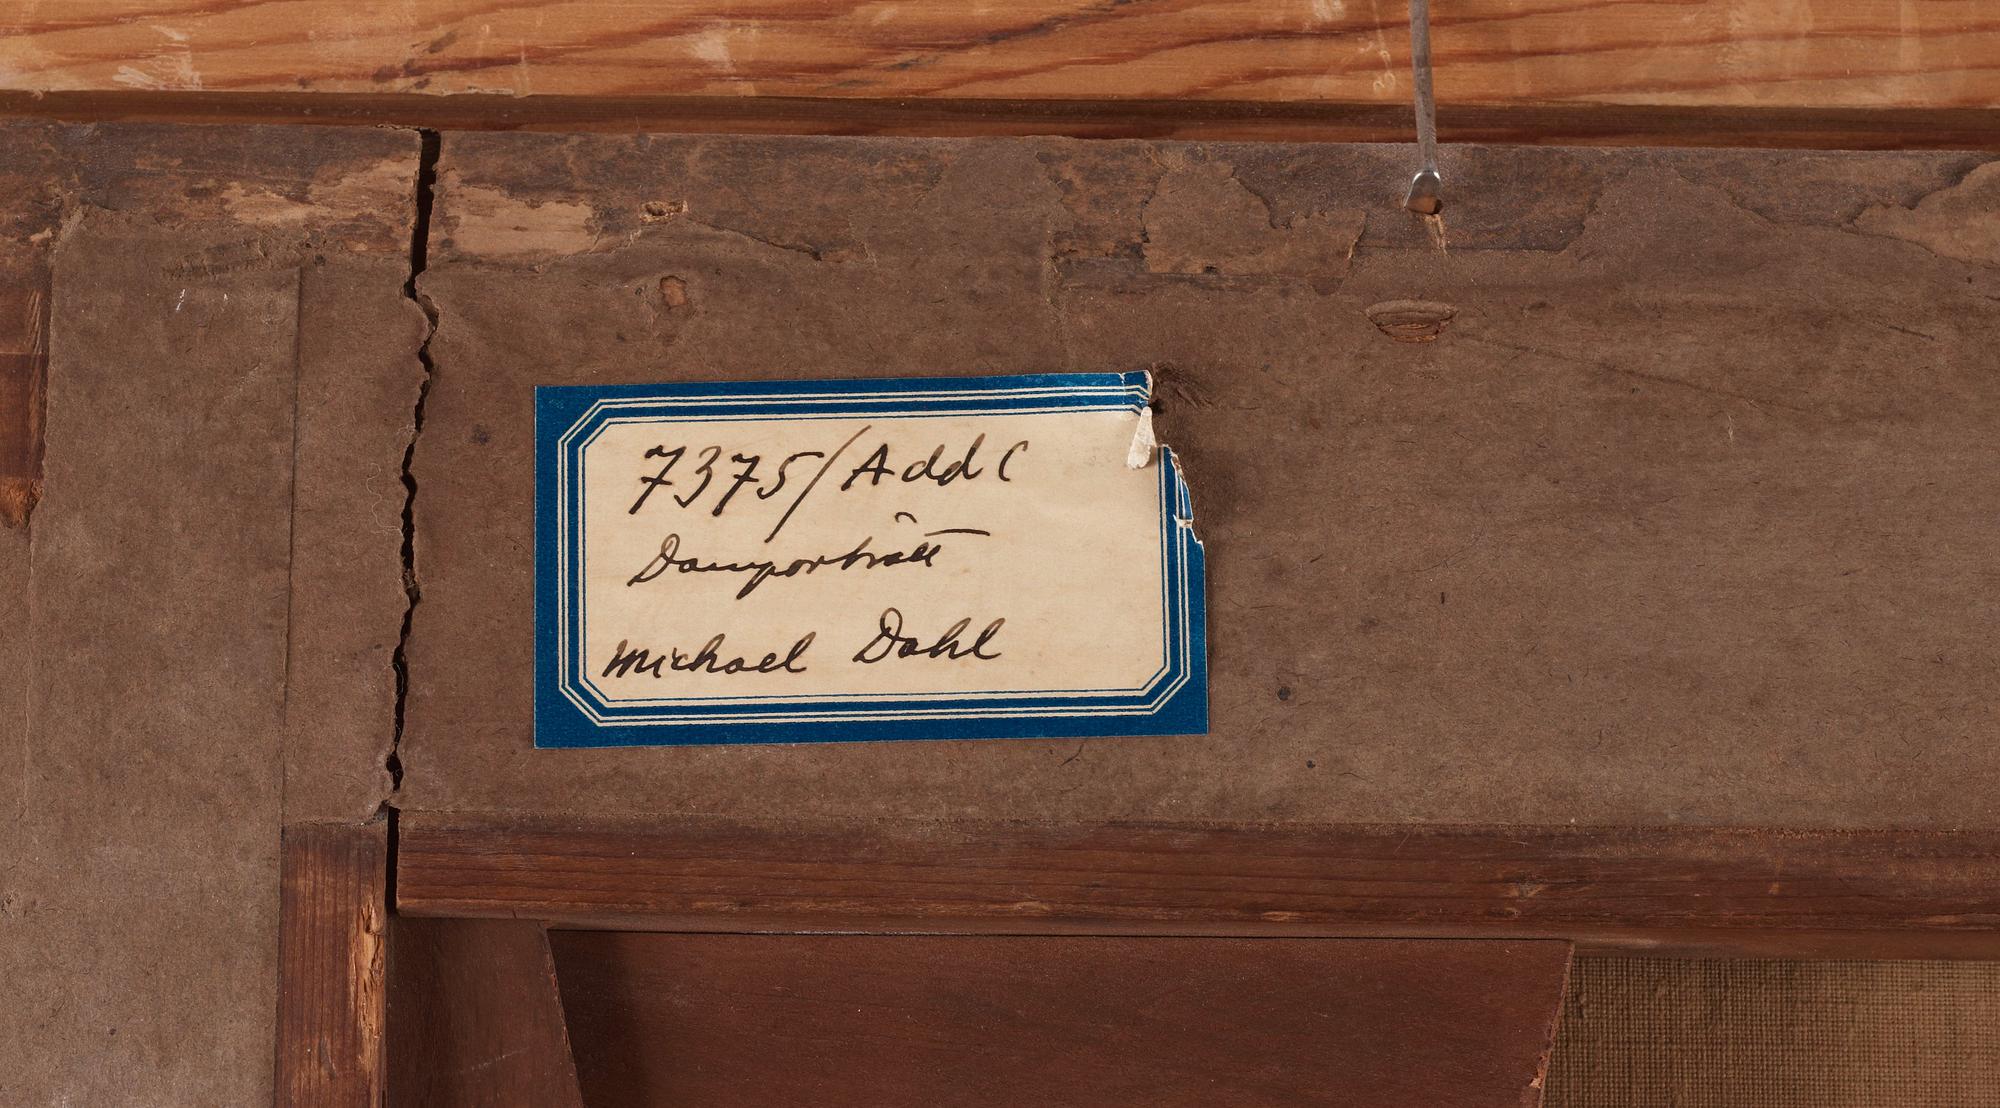 7375/Add C
Damporträtt
Michael Dahl